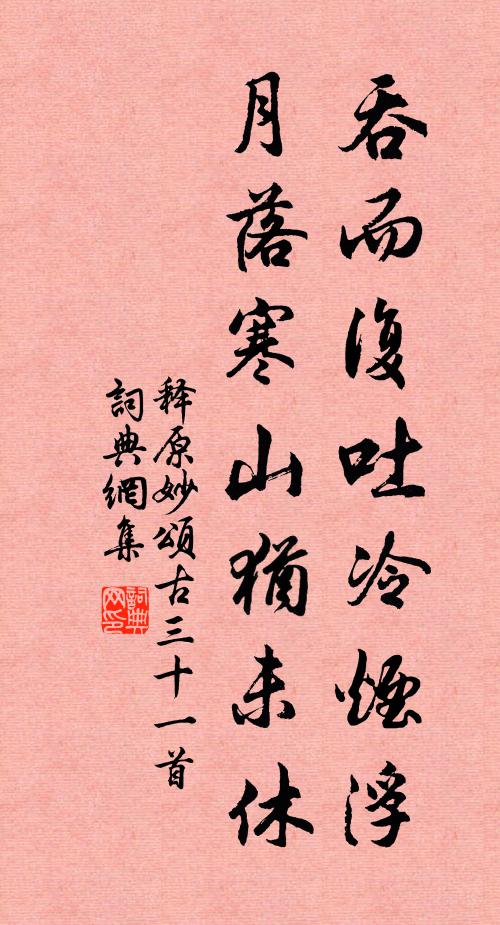 吞而復吐冷煙浮
月落寒山猶未休
释原妙頌古三十一首
詞典網集
詞典网印